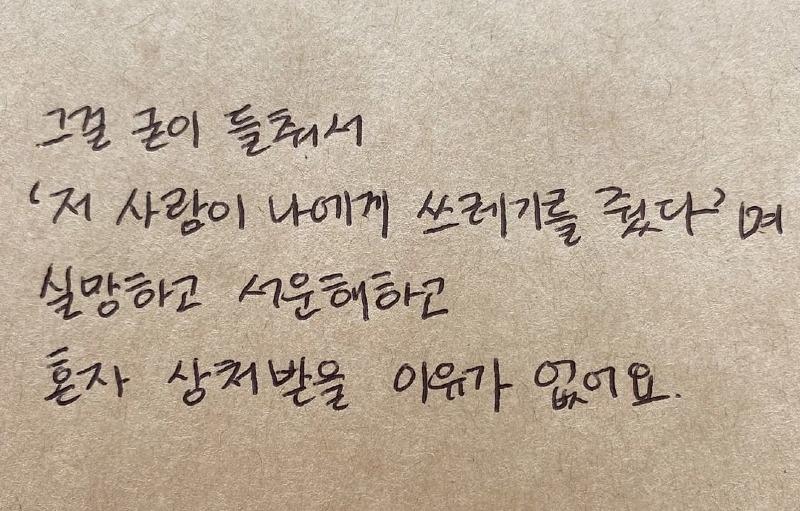 그걸 굳이 들춰서
'저 사람이 나에게 쓰레기를 줬다'며
실망하고 서운해하고
혼자 상처받을 이유가 없어요.